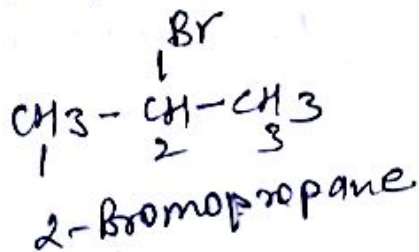 Br
CH3-CH-CH3
1 2 3
2-Bromopropane